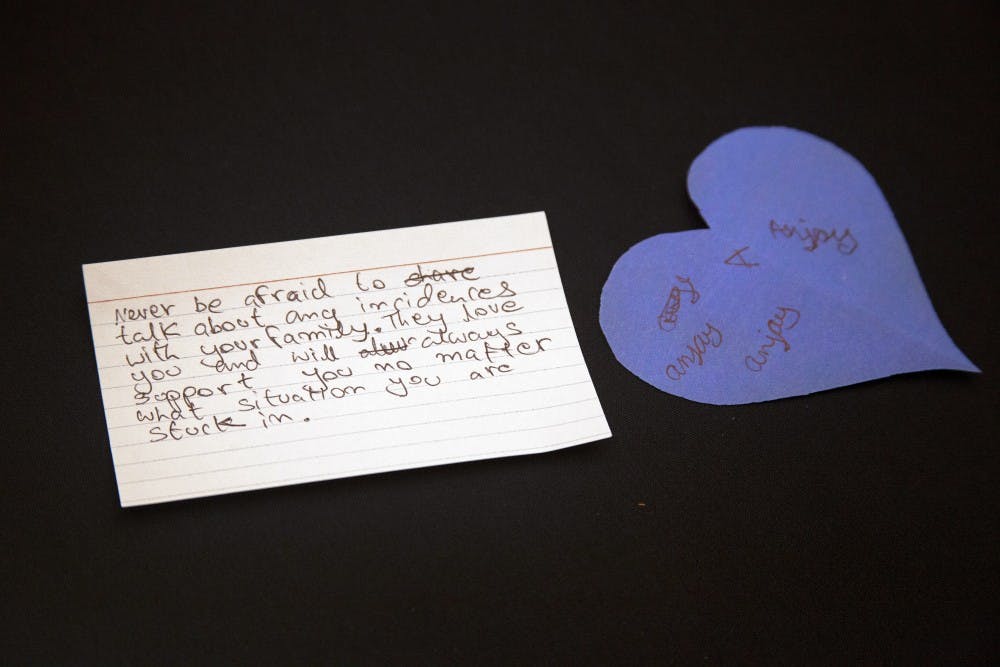 Never be afraid to share
talk about any incidences
with your family. They love
you and will always
support you no matter
what situation you are
stuck in.
Anjoy
A
anjoy
anjoy